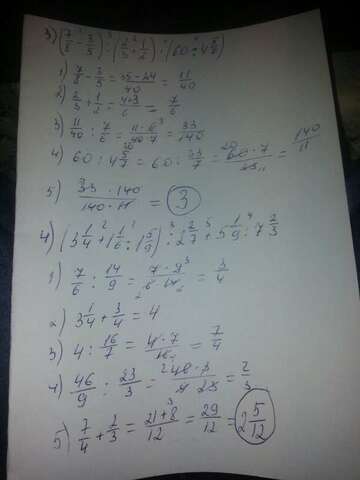 3) (7/8 - 3/5) : (2/3 + 1/2) · (60 : 4 5/7)
1) 7/8 - 3/5 = 35-24/40 = 11/40
2) 2/3 + 1/2 = 4+3/6 = 7/6
3) 11/40 : 7/6 = 11·6/40·7 = 33/140
4) 60 : 4 5/7 = 60 : 33/7 = 60·7/33 = 140/11
5) 33·140/140·11 = 3
4) (3 1/4 + 1 1/6 : 1 5/9) : 2 2/7 + 5 1/9 : 7 2/3
1) 7/6 : 14/9 = 7·9/6·14 = 3/4
2) 3 1/4 + 3/4 = 4
3) 4 : 16/7 = 4·7/16 = 7/4
4) 46/9 : 23/3 = 46·3/9·23 = 2/3
5) 7/4 + 2/3 = 21+8/12 = 29/12 = 2 5/12